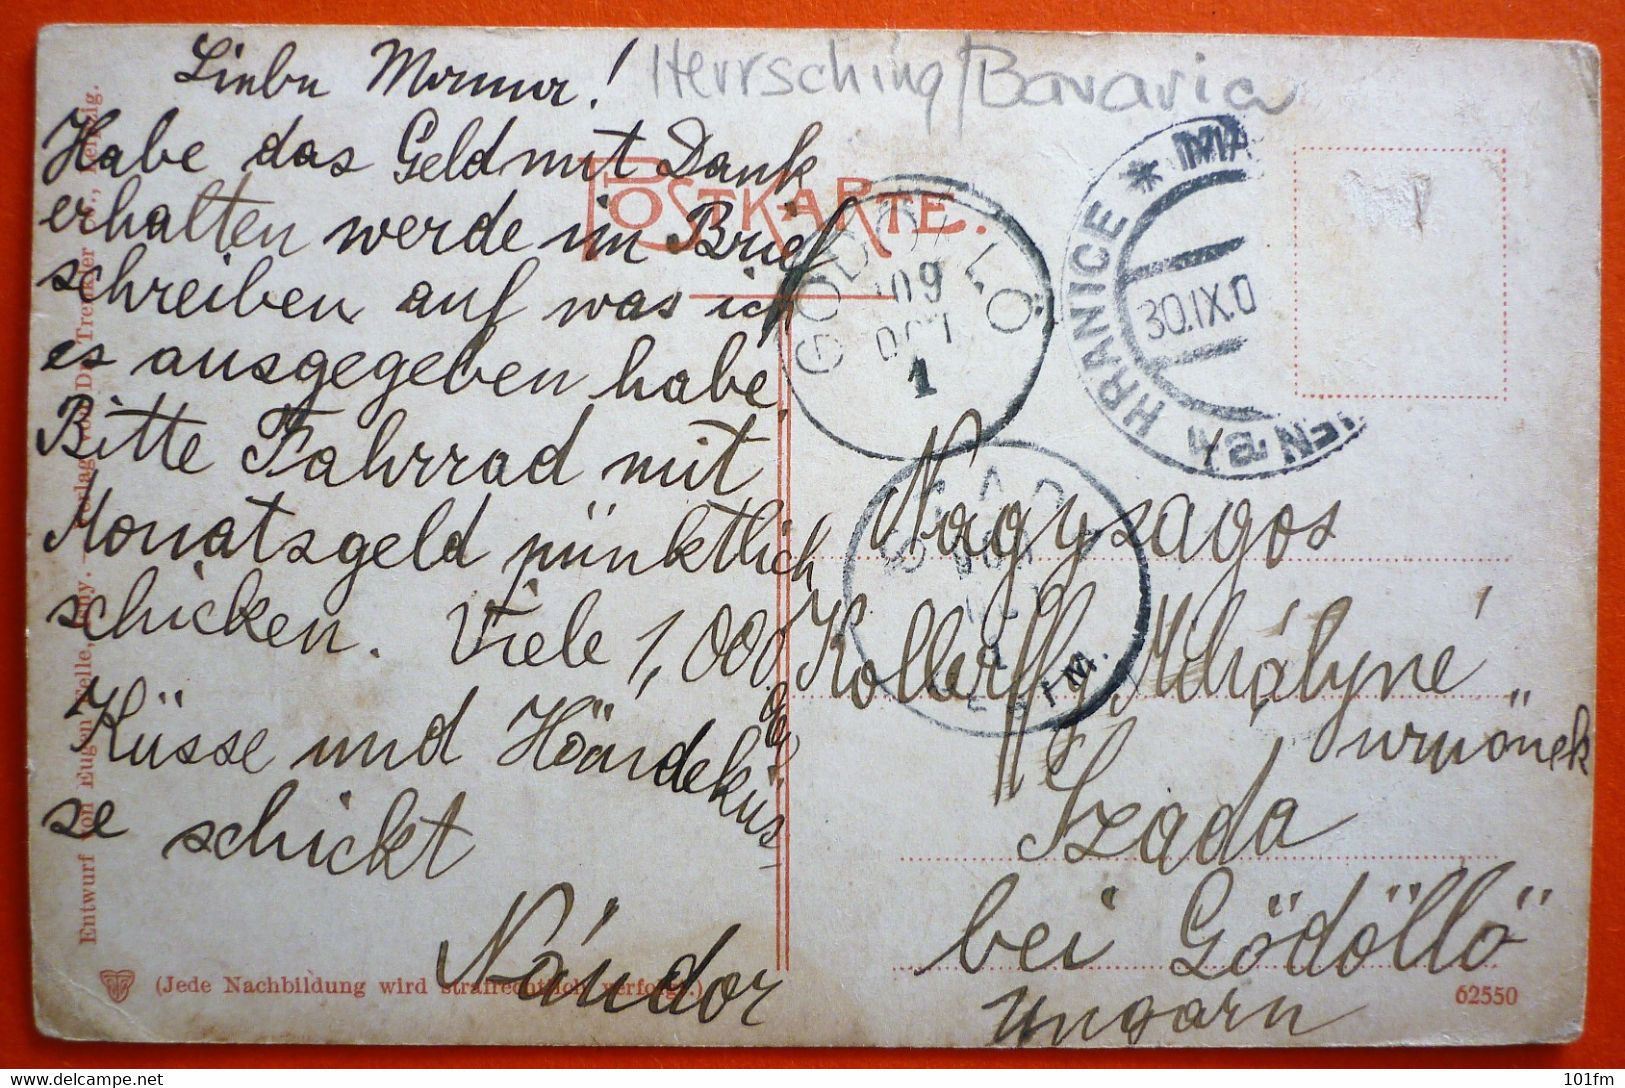 Liebe Mamma!
Herrsching/Bavaria
Habe das Geld mit Dank
erhalten werde im Brief
schreiben auf was ich
es ausgegeben habe.
Bitte Fahrrad mit
Monatsgeld pünktlich
schicken. Viele 1,000,000
Küsse und Händeküs-
se schickt
Nándor
POSTKARTE.
GÖDÖLLŐ
909
OCT
1
HRANICE * MÄ
30.IX.0
Nagysagos
Kollerffy Mihályné
urnőnek
Szada
bei Gödöllő
Ungarn
Entwurf von Eugen Felle, Isny. — Verlag von Dr. Trenkler Co., Leipzig.
(Jede Nachbildung wird strafrechtlich verfolgt.)
62550
delcampe.net
101fm